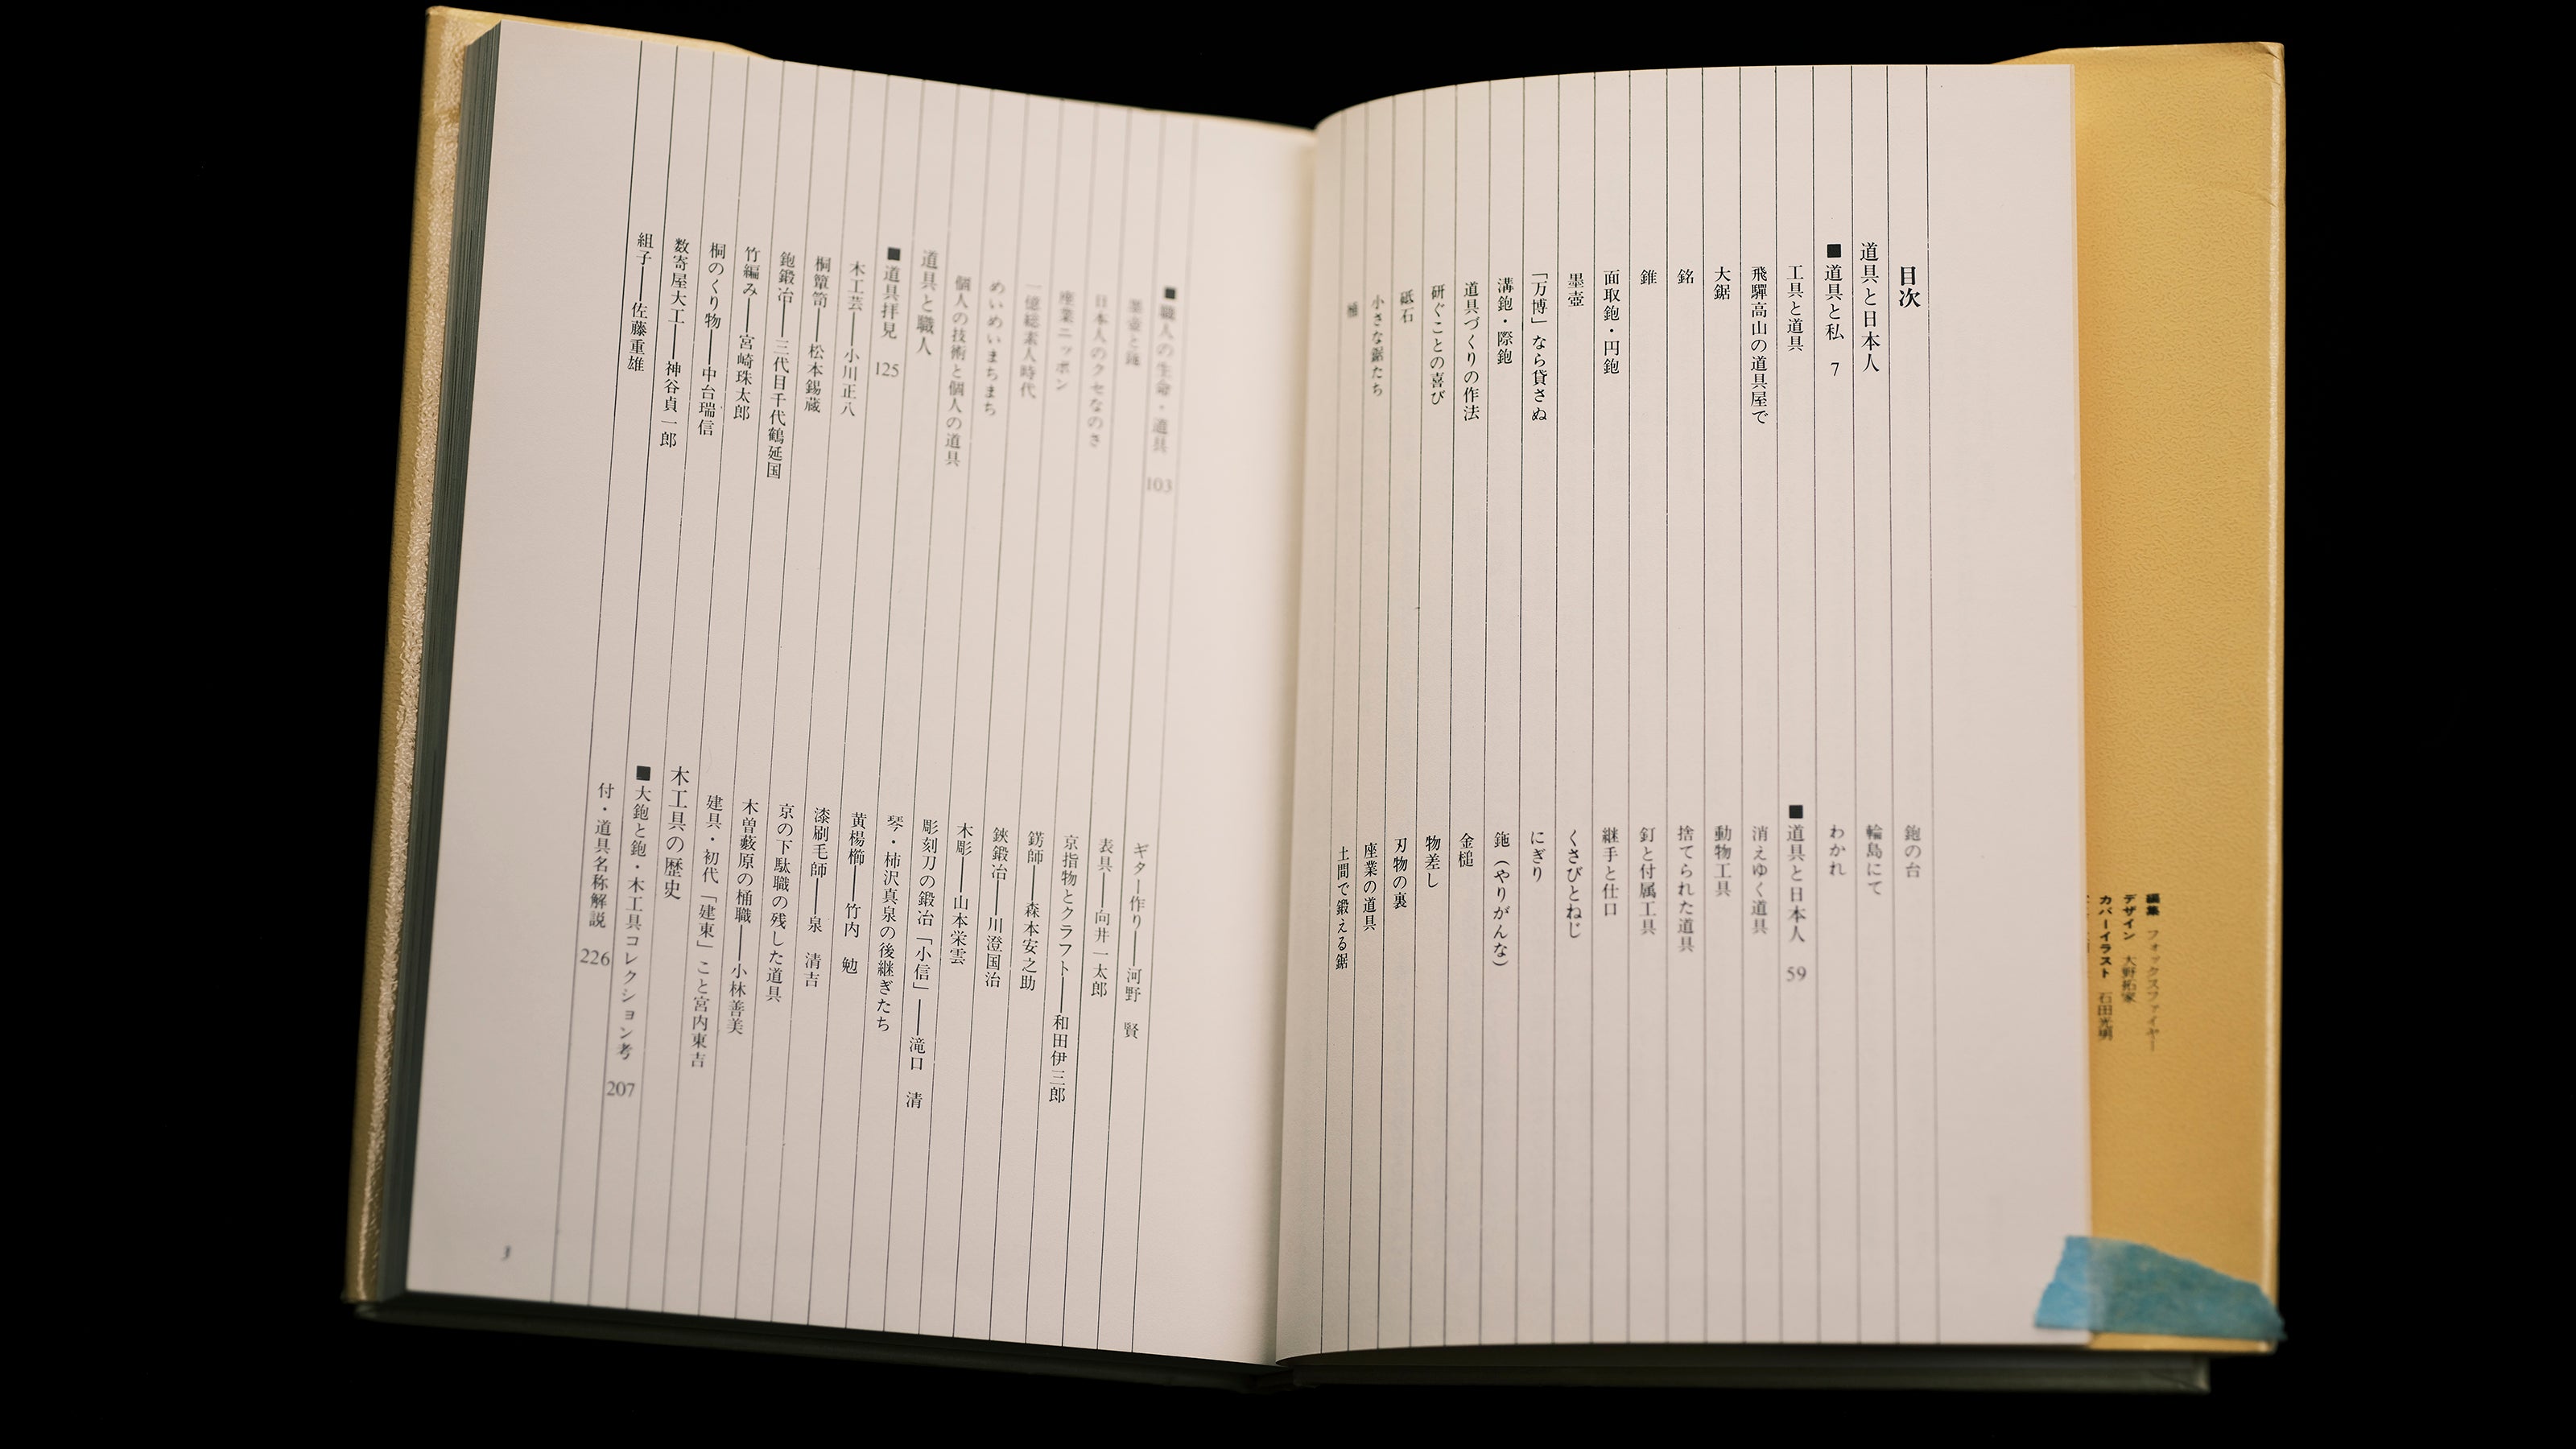 目次
道具と日本人
■道具と私 7
工具と道具
飛驒高山の道具屋で
大鋸
銘
錐
面取鉋・円鉋
墨壺
「万博」なら貸さぬ
溝鉋・際鉋
道具づくりの作法
研ぐことの喜び
砥石
小さな鋸たち
鉋の台
輪島にて
わかれ
■道具と日本人 59
消えゆく道具
動物工具
捨てられた道具
釘と付属工具
継手と仕口
くさびとねじ
にぎり
鉇（やりがんな）
金槌
物差し
刃物の裏
座業の道具
土間で鍛える鋸
■職人の生命・道具 103
墨壺と錐
日本人のクセなのさ
座業ニッポン
一億総素人時代
めいめいまちまち
個人の技術と個人の道具
道具と職人
■道具拝見 125
木工芸――小川正八
桐簞笥――松本錫蔵
鉋鍛冶――三代目千代鶴延国
竹編み――宮崎珠太郎
桐のくり物――中台瑞信
数寄屋大工――神谷貞一郎
組子――佐藤重雄
ギター作り――河野 賢
表具――向井一太郎
京指物とクラフト――和田伊三郎
錺師――森本安之助
鋏鍛冶――川澄国治
木彫――山本栄雲
彫刻刀の鍛冶「小信」――滝口 清
琴・柿沢真泉の後継ぎたち
黄楊櫛――竹内 勉
漆刷毛師――泉 清吉
京の下駄職の残した道具
木曽藪原の桶職――小林善美
建具・初代「建東」こと宮内東吉
木工具の歴史
■大鉋と鉋・木工具コレクション考 207
付・道具名称解説 226
3
編集 フォックスファイヤー
デザイン 大野拓家
カバーイラスト 石田光男